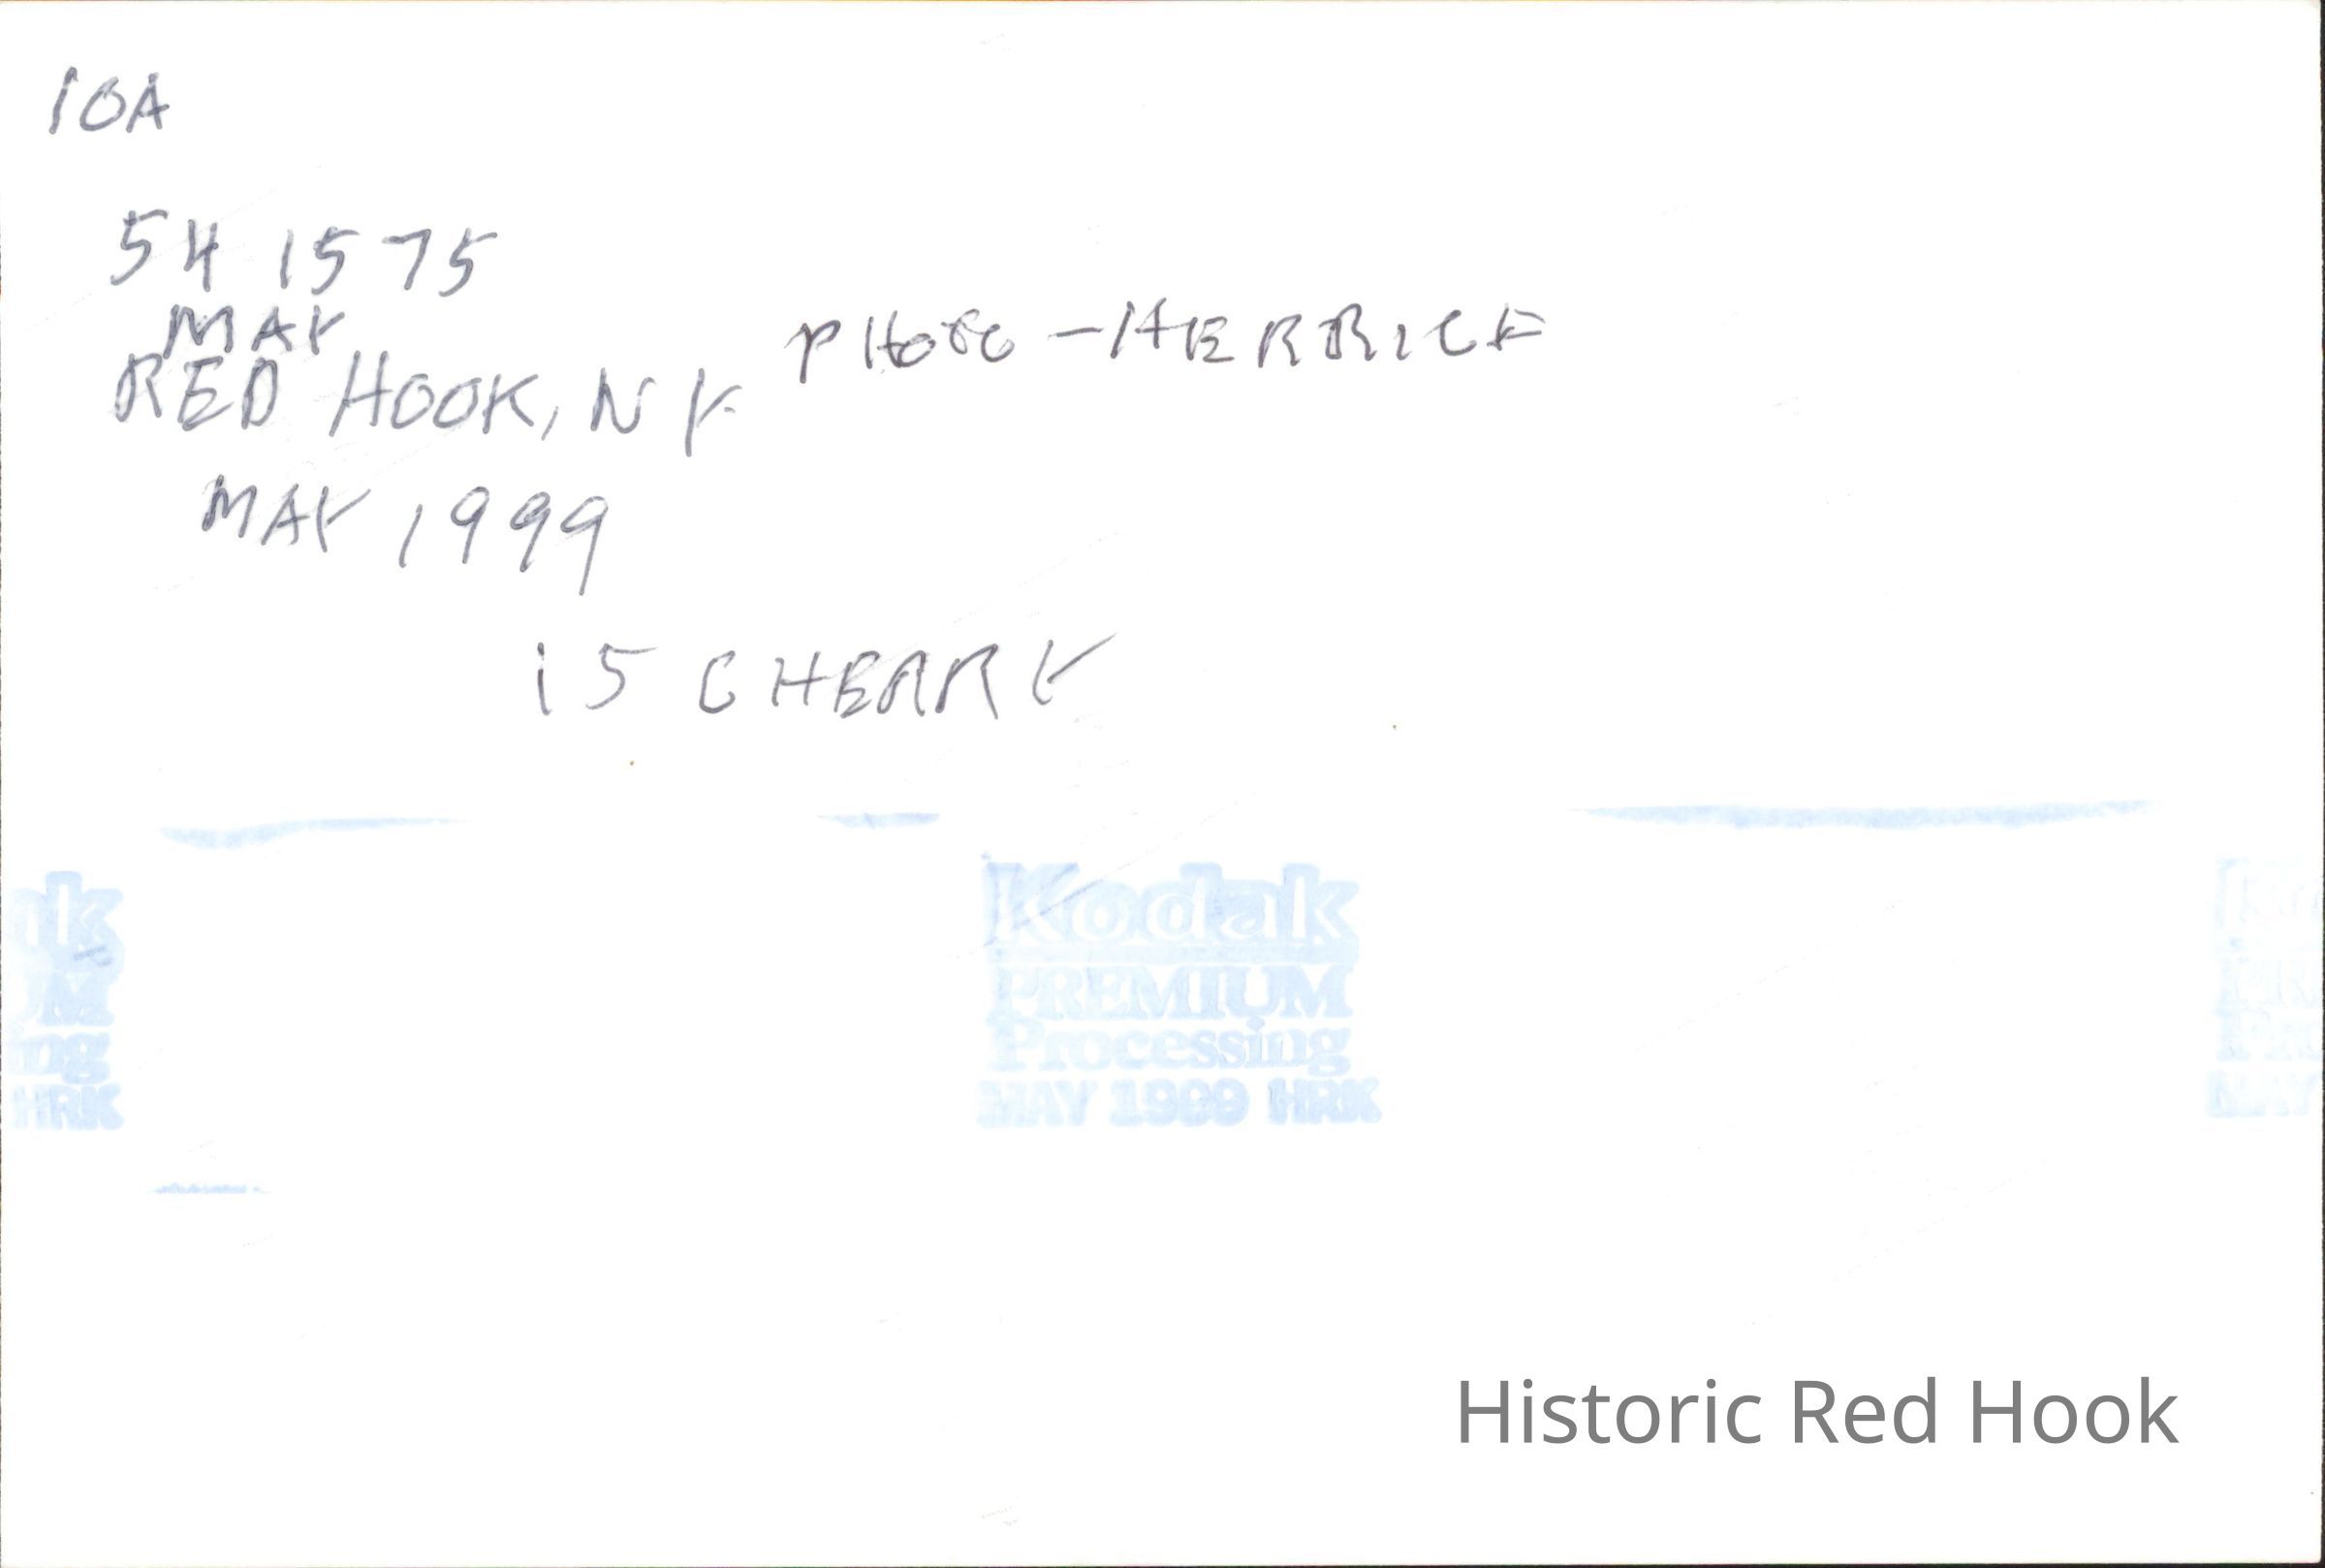 10A
54 1575
MAY
PHOTO - HERRICK
RED HOOK, NY
MAY 1999
15 CHERRY
Kodak
PREMIUM
Processing
MAY 1999 HRK
ak
UM
ing
HRK
MAY
Historic Red Hook